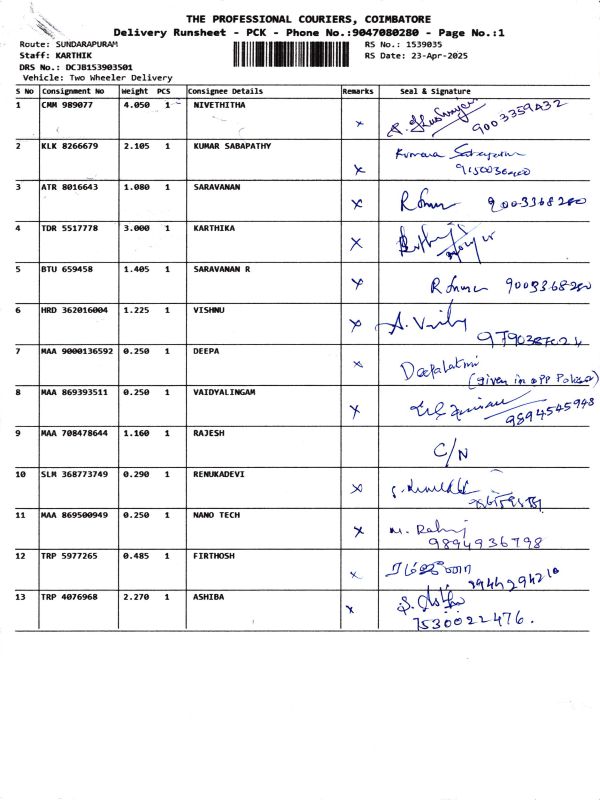 THE PROFESSIONAL COURIERS, COIMBATORE
Delivery Runsheet - PCK - Phone No.:9047080280 - Page No.:1
Route: SUNDARAPURAM RS No.: 1539035
Staff: KARTHIK RS Date: 23-Apr-2025
DRS No.: DCJB153903501
Vehicle: Two Wheeler Delivery
S No Consignment No Weight PCS Consignee Details Remarks Seal & Signature
1 CMM 989077 4.050 1 NIVETHITHA x 9003359432
2 KLK 8266679 2.105 1 KUMAR SABAPATHY x Kumara
3 ATR 8016643 1.080 1 SARAVANAN x 9003368200
4 TDR 5517778 3.000 1 KARTHIKA x
5 BTU 659458 1.405 1 SARAVANAN R x 9003368200
6 HRD 362016004 1.225 1 VISHNU x
7 MAA 9000136592 0.250 1 DEEPA x
(given in opp
8 MAA 869393511 0.250 1 VAIDYALINGAM x
9894545948
9 MAA 708478644 1.160 1 RAJESH C/N
10 SLM 368773749 0.290 1 RENUKADEVI x
11 MAA 869500949 0.250 1 NANO TECH x
9894936798
12 TRP 5977265 0.485 1 FIRTHOSH x
13 TRP 4076968 2.270 1 ASHIBA x
7530022476.